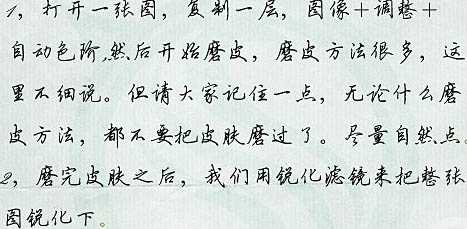 1，打开一张图，复制一层，图像+调整+
自动色阶,然后开始磨皮，磨皮方法很多，这
里不细说。但请大家记住一点，无论什么磨
皮方法，都不要把皮肤磨过了。尽量自然点。
2，磨完皮肤之后，我们用锐化滤镜来把整张
图锐化下。